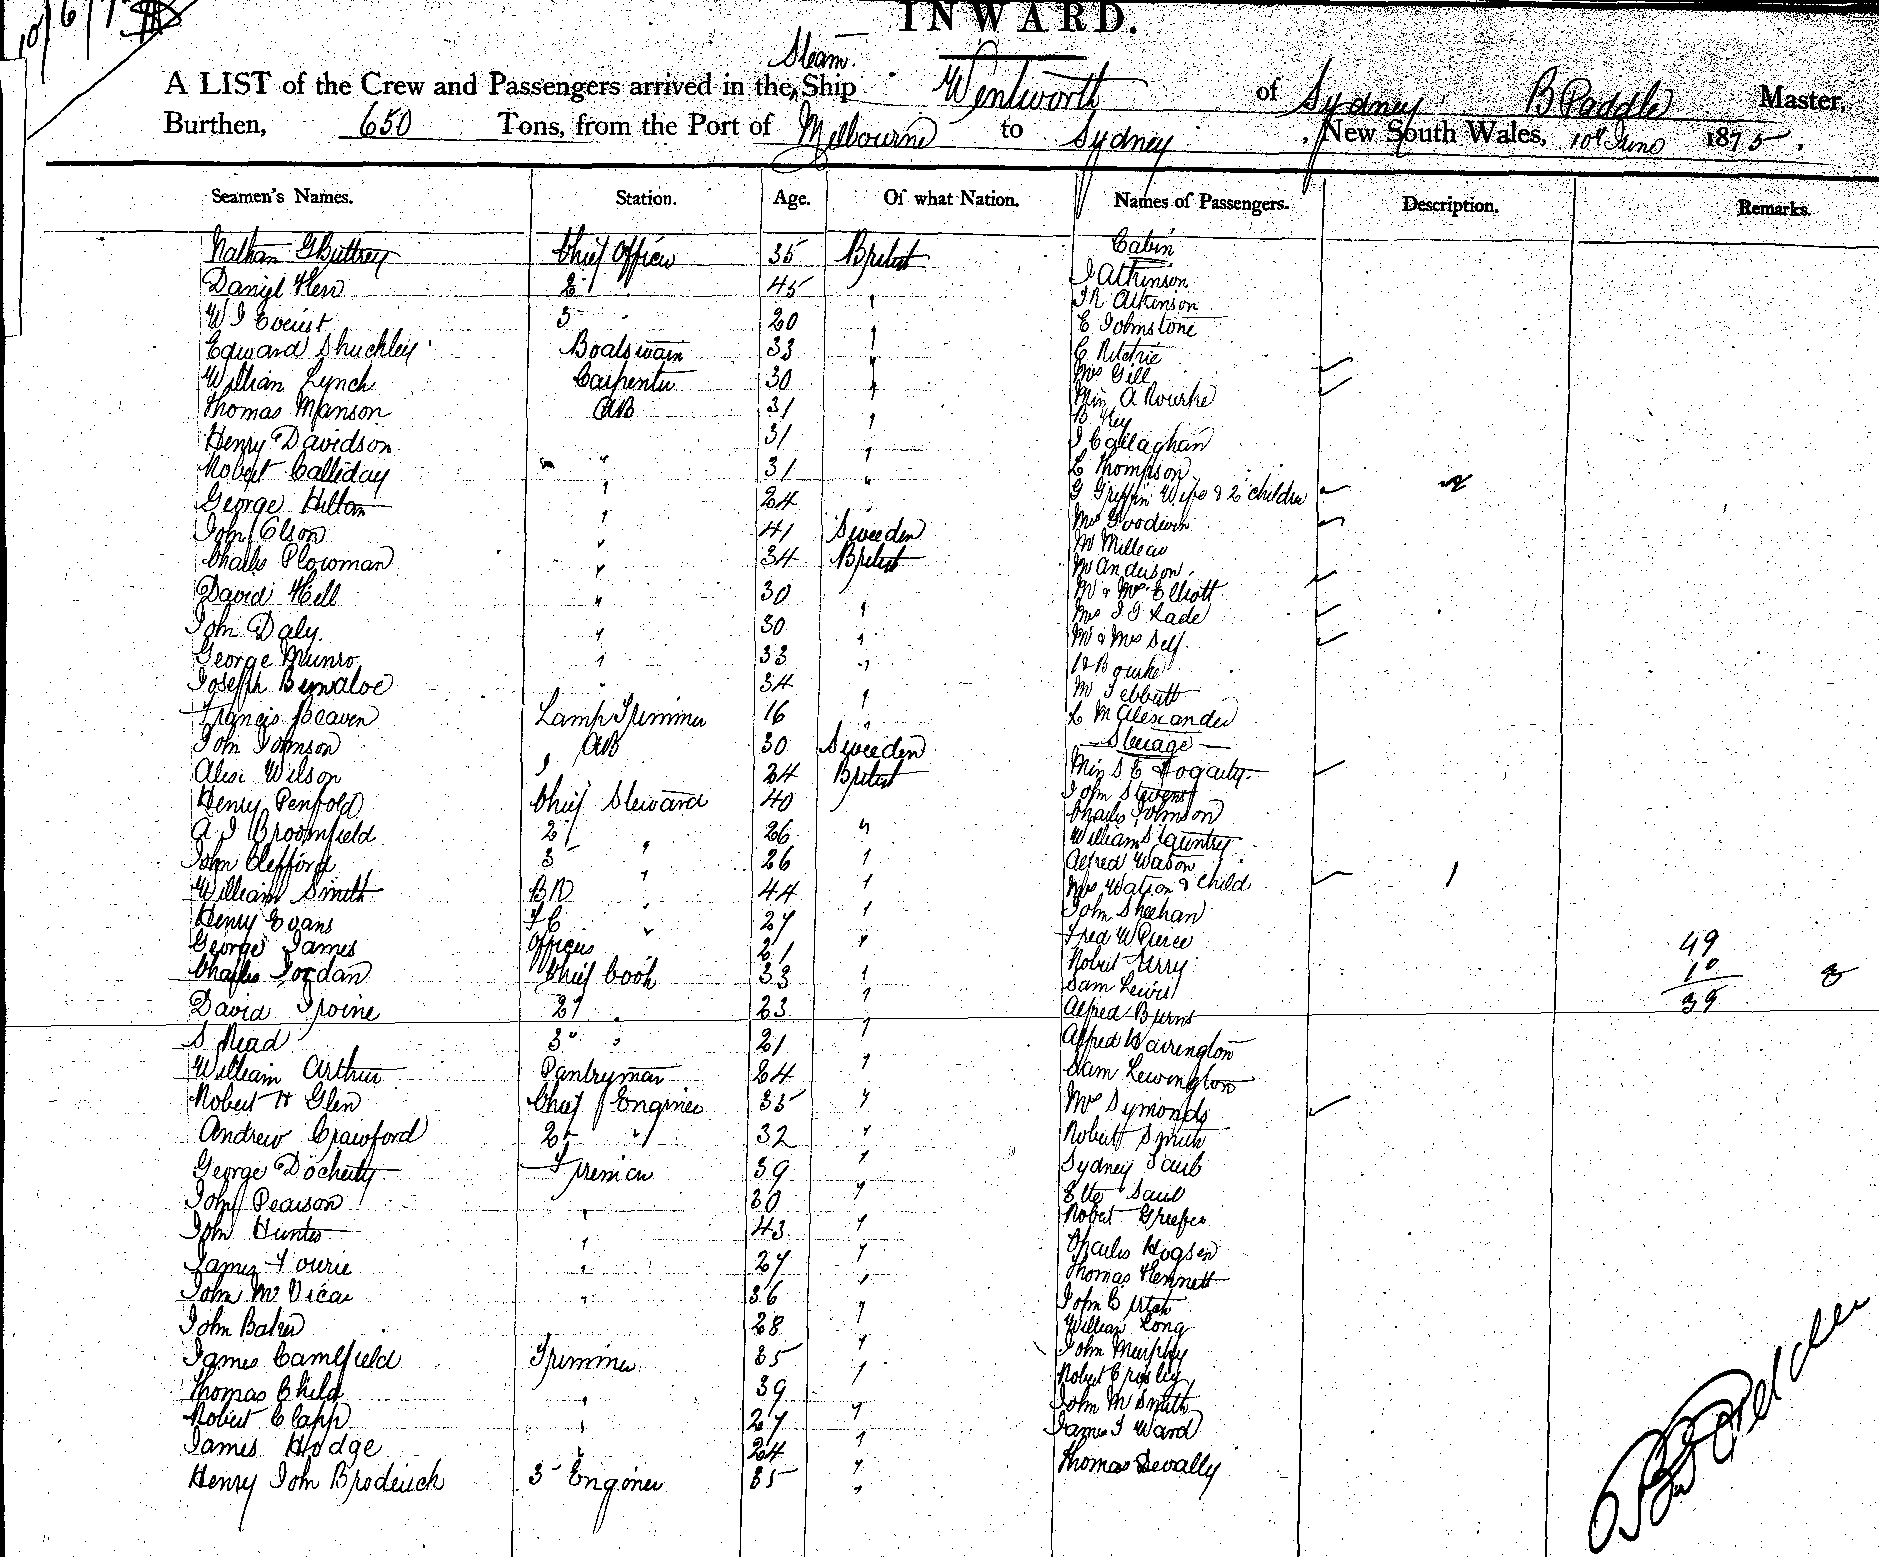 10/6/75
INWARD.
Steam
A LIST of the Crew and Passengers arrived in the Ship Wentworth of Sydney B Paddle Master,
Burthen, 650 Tons, from the Port of Melbourne to Sydney, New South Wales, 10th June 1875.
Seamen's Names. Station. Age. Of what Nation. Names of Passengers. Description. Remarks.
Nathan G Buttrey Chief Officer 35 British Cabin
Daniel Kerr 2 " 45 " J Atkinson
W J 3 " 20 " J R Atkinson
Edward Shuckley Boatswain 33 " E Johnstone
William Lynch Carpenter 30 " C Ritchie
Thomas Manson AB 31 " Mrs Gill
Henry Davidson " 31 " Miss A Rourke
Robert Calliday " 31 " B Key
George Hilton " 24 " J Callaghan
John Olson " 41 Sweeden L Thompson
Charles Plowman " 34 British G Griffin Wife & 2 children 2
David Hill " 30 " Mrs Goodwin
John Daly " 30 " Mr Millear
George Munro " 33 " Mr Anderson
Joseph " 34 " Mr & Mrs Elliott
Francis Beaven Lamp Trimmer 16 " Mrs J J Lade
John Johnson AB 30 Sweeden Mr & Mrs Self
Alex Wilson " 24 British Bourke
Henry Penfold Chief Steward 40 Mr Tebbutt
A J Broomfield 2 " 26 " L M Alexander
John Clefford 3 " 26 " Steerage
William Smith BR " 44 " Miss S E Fogarty
Henry Evans FC " 27 " John Stevens
George James Officers 21 " Charles Johnson
Charles Jordan Chief Cook 33 " William St Quintry
David Irvine 2 " 23 " Alfred Watson
S Read 3 " 21 " Mrs Watson & Child 1
William Arthur Pantryman 24 " John Sheehan
Robert H Glen Chief Engineer 35 " Fred W Pierce
Andrew Crawford 2 " 32 " Robert Perry
George Docherty Fireman 39 " Sam Lewis
John Pearson " 30 " Alfred Burns
John Hunter " 43 " Alfred Warrington
James Fourie " 27 " Sam Lewington
John McVicar " 36 " Mrs Symonds
John Baker 28 " Robert Smith
James Camlfield Trimmer 35 " Sydney Saub
Thomas Child " 39 " Saul
Robert Clapp " 27 " Robert
James Hodge " 24 " Charles Hogsen
Henry John Broderick 3 Engineer 35 " Thomas Kennett
John C
William Long
John Murphy
Robert Crosley
John M Smith
James J Ward
Thomas Devally
49
10
39 3